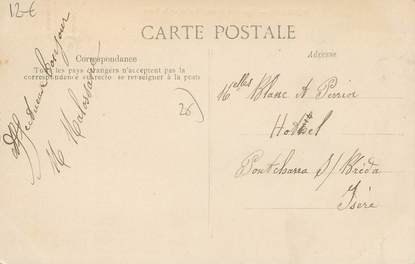 12-€
CARTE POSTALE
Correspondance
Tous les pays étrangers n'acceptent pas la
correspondance au recto se renseigner à la poste
Adresse
Affectueux bonjour
M
26)
Melles Blanc A Perrin
Hotel
Pontcharra S/ Bréda
Isère